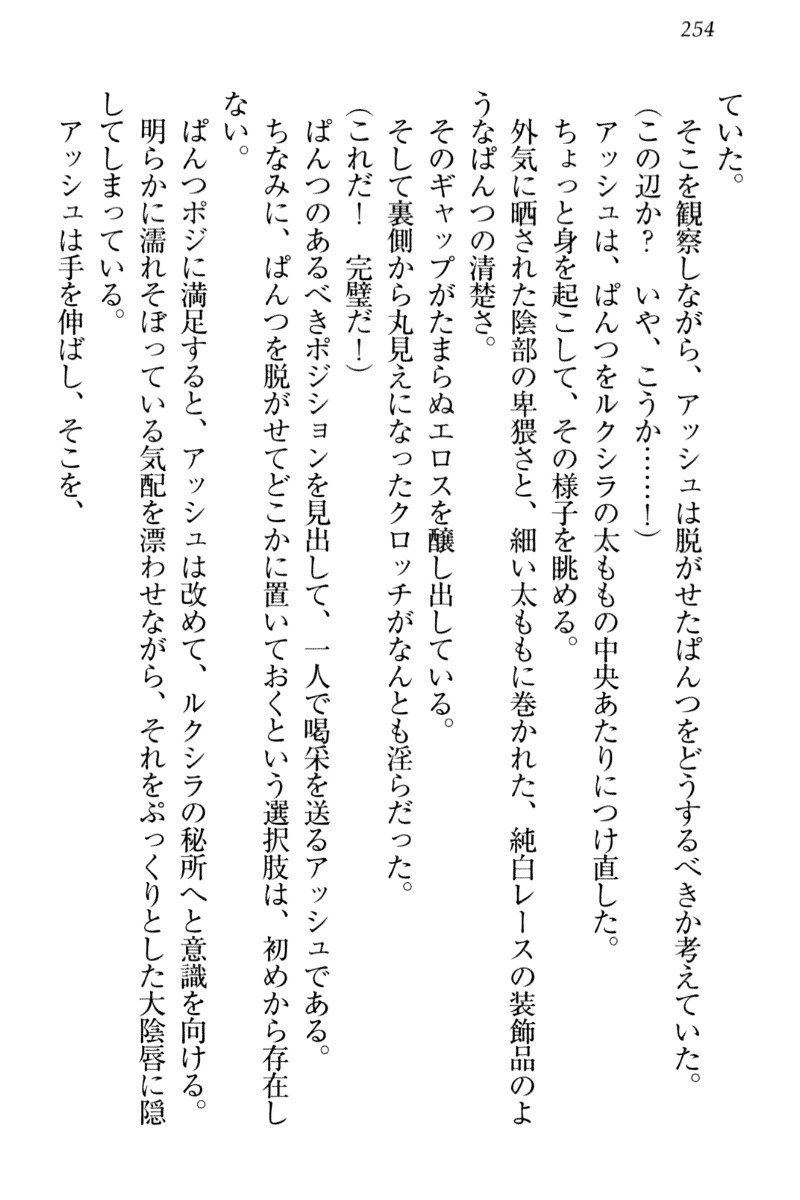 254
ていた。
そこを観察しながら、アッシュは脱がせたぱんつをどうするべきか考えていた。
（この辺か？　いや、こうか……！）
アッシュは、ぱんつをルクシラの太ももの中央あたりにつけ直した。
ちょっと身を起こして、その様子を眺める。
外気に晒された陰部の卑猥さと、細い太ももに巻かれた、純白レースの装飾品のよ
うなぱんつの清楚さ。
そのギャップがたまらぬエロスを醸し出している。
そして裏側から丸見えになったクロッチがなんとも淫らだった。
（これだ！　完璧だ！）
ぱんつのあるべきポジションを見出して、一人で喝采を送るアッシュである。
ちなみに、ぱんつを脱がせてどこかに置いておくという選択肢は、初めから存在し
ない。
ぱんつポジに満足すると、アッシュは改めて、ルクシラの秘所へと意識を向ける。
明らかに濡れそぼっている気配を漂わせながら、それをぷっくりとした大陰唇に隠
してしまっている。
アッシュは手を伸ばし、そこを、